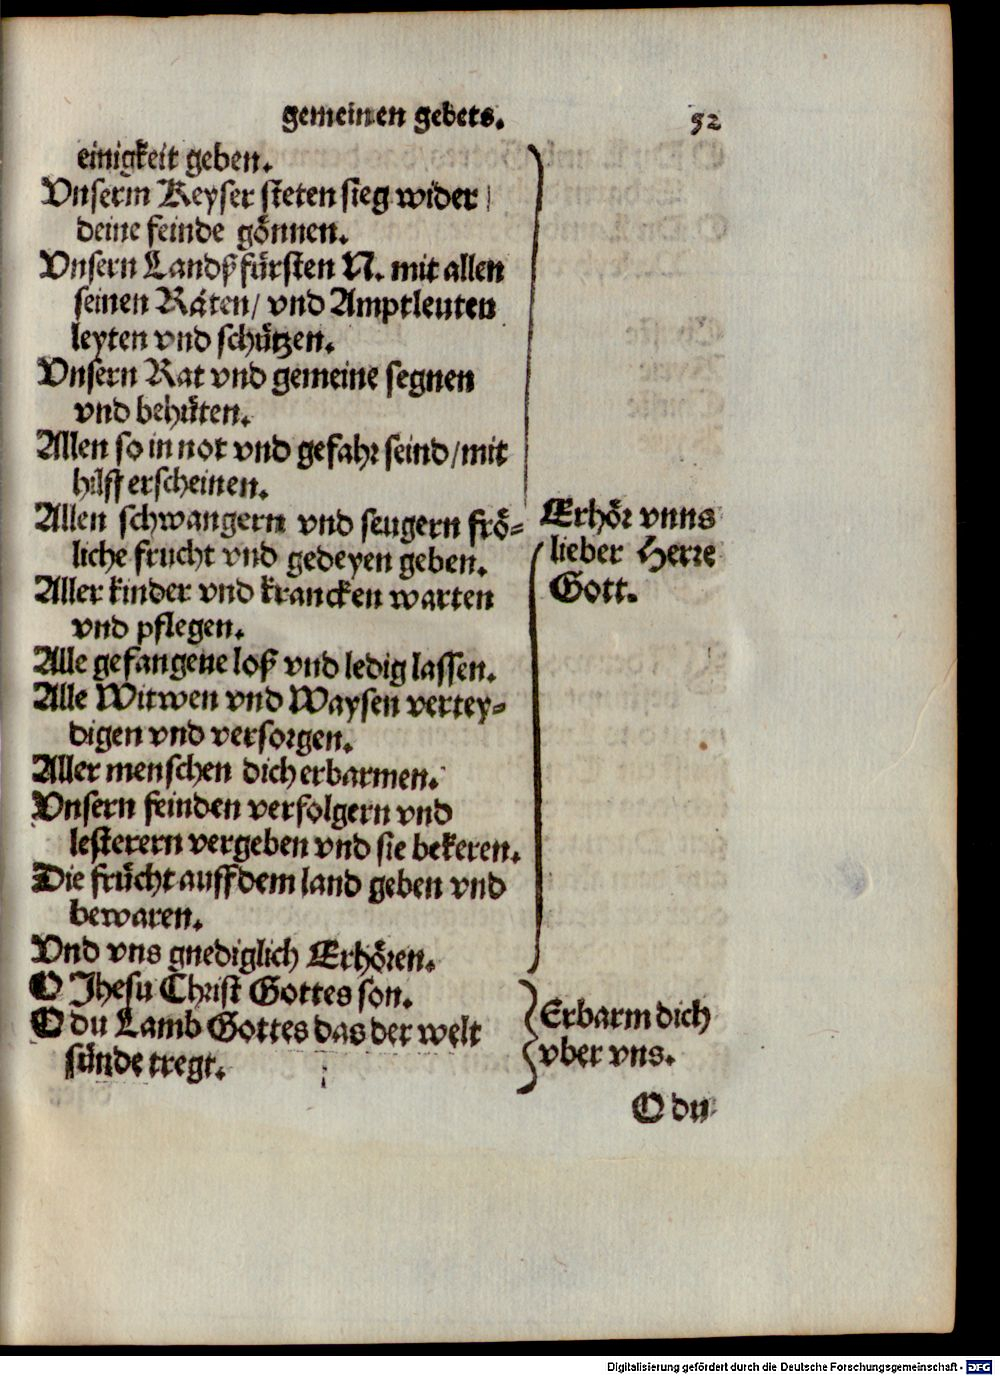 gemeinen gebets.
52
einigkeit geben.
Vnserm Keyser steten sieg wider
deine feinde gönnen.
Vnsern Landßfürsten N. mit allen
seinen Räten/ vnd Amptleuten
leyten vnd schützen.
Vnsern Rat vnd gemeine segnen
vnd behüten.
Allen so in not vnd gefahr seind/mit
hilff erscheinen.
Allen schwangern vnd seugern frö-
liche frucht vnd gedeyen geben.
Aller kinder vnd krancken warten
vnd pflegen.
Alle gefangene loß vnd ledig lassen.
Alle Witwen vnd Waysen vertey-
digen vnd versorgen.
Aller menschen dich erbarmen.
Vnsern feinden verfolgern vnd
lesterern vergeben vnd sie bekeren.
Die frücht auff dem land geben vnd
bewaren.
Vnd vns gnediglich Erhören.
Erhör vnns
lieber Herre
Gott.
O Jhesu Christ Gottes son.
O du Lamb Gottes das der welt
sünde tregt.
Erbarm dich
vber vns.
O du
Digitalisierung gefördert durch die Deutsche Forschungsgemeinschaft - DFG